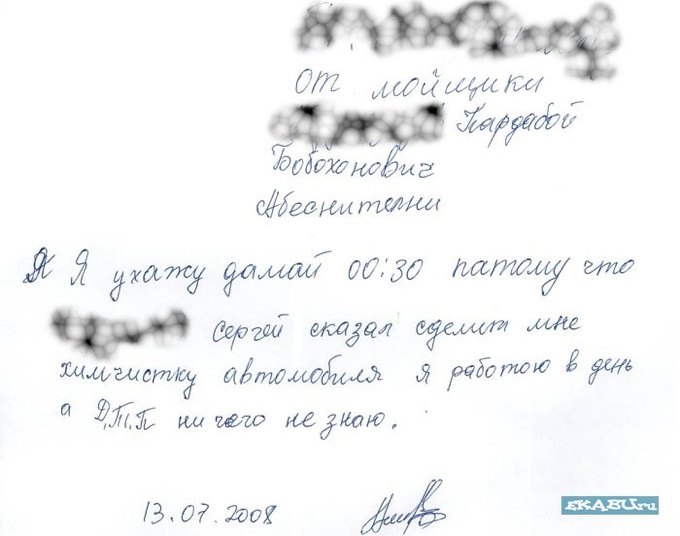 от мойщики
Пардабой
Бобохонович
Абеснителни
Я Я ухажу дамай 00:30 патому что
Сергей сказал сделит мне
химчистку автомобиля я работою в день
а Д,Т,П ни чего не знаю.
13.07.2008
EKABU.ru